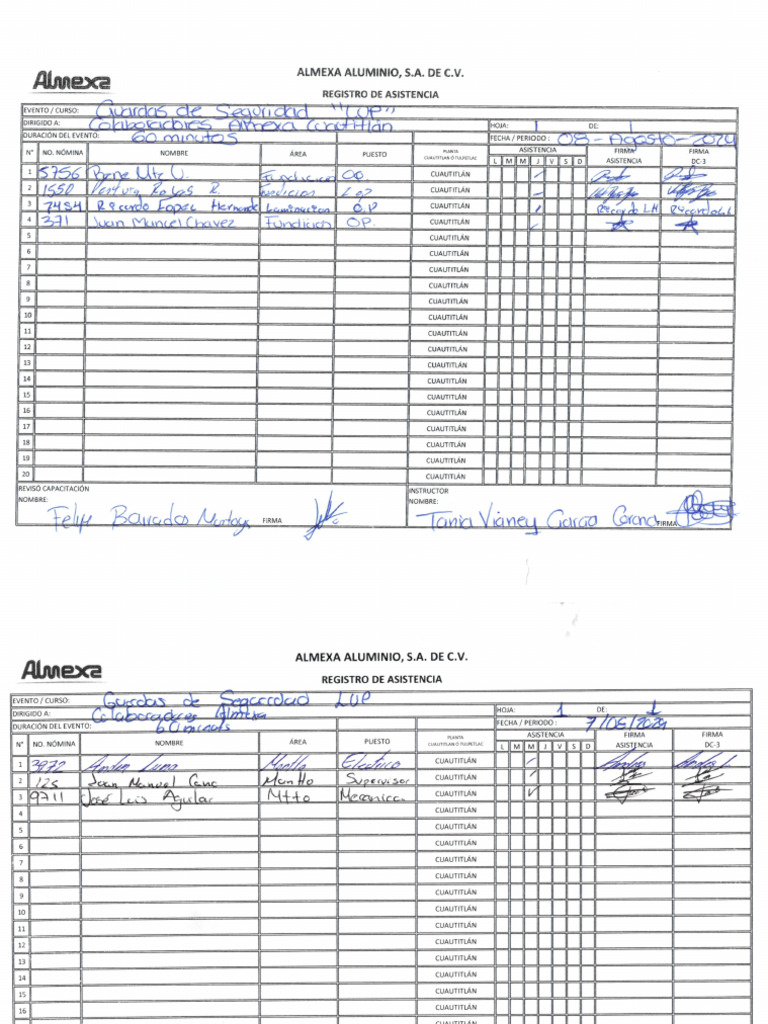 Almexa
ALMEXA ALUMINIO, S.A. DE C.V.
REGISTRO DE ASISTENCIA
EVENTO / CURSO: Guardas de Seguridad "LUP"
DIRIGIDO A: Colaboradores Almexa Cuautitlán HOJA: 1 DE: 1
DURACIÓN DEL EVENTO: 60 minutos FECHA / PERIODO: 08-Agosto-2024
N° NO. NÓMINA NOMBRE ÁREA PUESTO PLANTA CUAUTITLAN O TULPETLAC ASISTENCIA L M M J V S D FIRMA ASISTENCIA FIRMA DC-3
1 5756 Fundicion OP. CUAUTITLÁN
2 1550 CUAUTITLÁN
3 7484 Ricardo Lopez Hernande Laminacion O.P CUAUTITLÁN Ricardo LH
4 371 Juan Manuel Chavez Fundicion OP. CUAUTITLÁN
5 CUAUTITLÁN
6 CUAUTITLÁN
7 CUAUTITLÁN
8 CUAUTITLÁN
9 CUAUTITLÁN
10 CUAUTITLÁN
11 CUAUTITLÁN
12 CUAUTITLÁN
13 CUAUTITLÁN
14 CUAUTITLÁN
15 CUAUTITLÁN
16 CUAUTITLÁN
17 CUAUTITLÁN
18 CUAUTITLÁN
19 CUAUTITLÁN
20 CUAUTITLÁN
REVISÓ CAPACITACIÓN INSTRUCTOR
NOMBRE: NOMBRE:
Felipe Barrados FIRMA Tania Vianey Garcia Corona FIRMA
ALMEXA ALUMINIO, S.A. DE C.V.
Almexa
REGISTRO DE ASISTENCIA
EVENTO / CURSO: Guardas de Seguridad LUP
DIRIGIDO A: Colaboradores Almexa HOJA: 1 DE: 1
DURACIÓN DEL EVENTO: 60 minuts FECHA / PERIODO: 7/05/2024
N° NO. NÓMINA NOMBRE ÁREA PUESTO PLANTA CUAUTITLAN O TULPETLAC ASISTENCIA L M M J V S D FIRMA ASISTENCIA FIRMA DC-3
1 3972 Luna Mantto Electrico CUAUTITLÁN
2 125 Juan Manuel Cano Mantto Supervisor CUAUTITLÁN
3 9711 José Luis Aguilar Mtto Mecanico CUAUTITLÁN
4 CUAUTITLÁN
5 CUAUTITLÁN
6 CUAUTITLÁN
7 CUAUTITLÁN
8 CUAUTITLÁN
9 CUAUTITLÁN
10 CUAUTITLÁN
11 CUAUTITLÁN
12 CUAUTITLÁN
13 CUAUTITLÁN
14 CUAUTITLÁN
15 CUAUTITLÁN
16 CUAUTITLÁN
CUAUTITLÁN